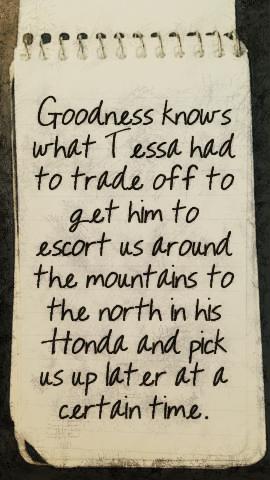 Goodness knows
what Tessa had
to trade off to
get him to
escort us around
the mountains to
the north in his
Honda and pick
us up later at a
certain time.